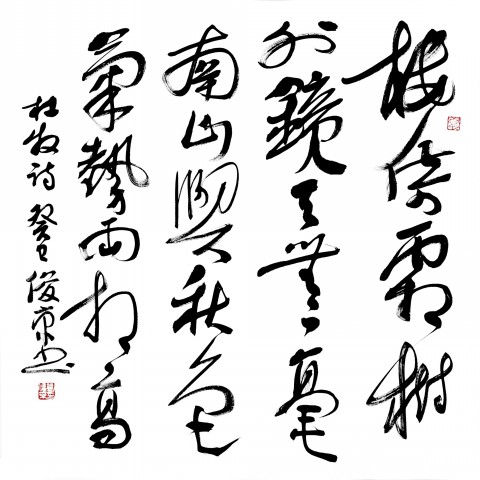 樓倚霜樹
外鏡天無一毫
南山與秋色
氣勢兩相高
杜牧詩癸巳俊京書